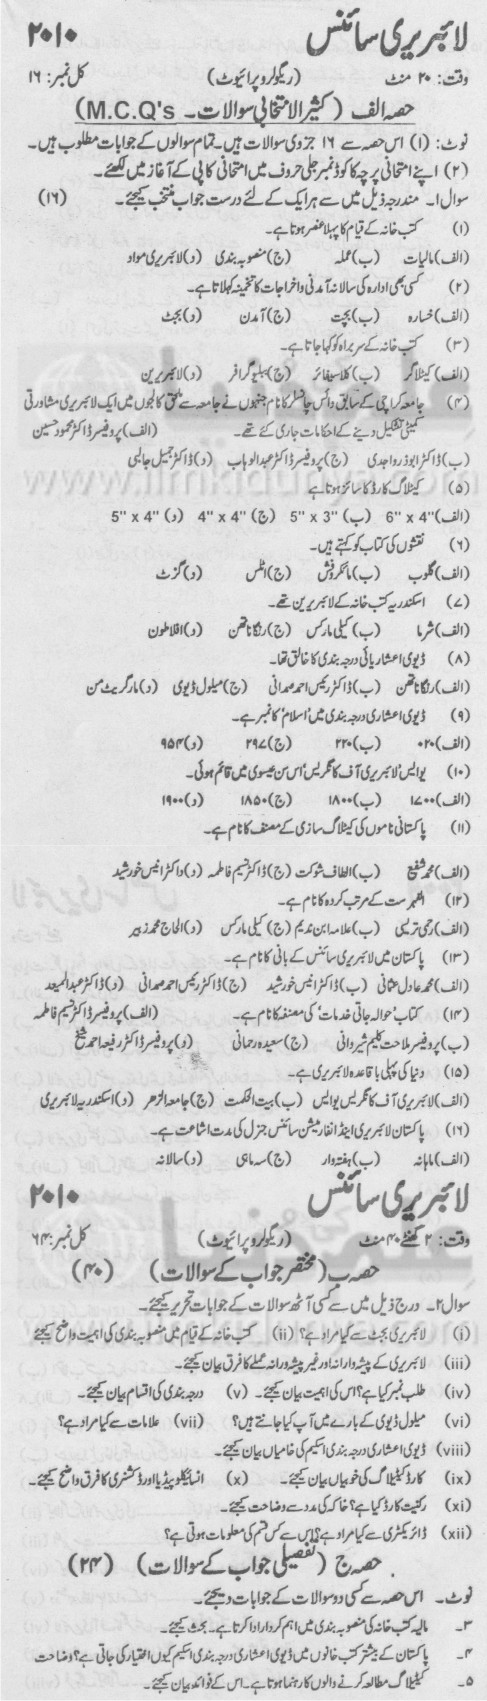 لائبریری سائنس ۲۰۱۰
وقت: ۲۰ منٹ (ریگولر و پرائیوٹ) کل نمبر: ۱۶
حصہ الف (کثیر الانتخابی سوالات۔ M.C.Q's)
نوٹ: (۱) اس حصہ سے ۱۶ جزوی سوالات ہیں۔ تمام سوالوں کے جوابات مطلوب ہیں۔
(۲) اپنے امتحانی پرچہ کا کوڈ نمبر جلی حروف میں امتحانی کاپی کے آغاز میں لکھئے۔
سوال۱۔ مندرجہ ذیل میں سے ہر ایک کے لئے درست جواب منتخب کیجئے۔ (۱۶)
(۱) کتب خانہ کے قیام کا پہلا عنصر ہوتا ہے۔
(الف) مالیات (ب) عملہ (ج) منصوبہ بندی (د) لائبریری مواد
(۲) کسی بھی ادارہ کی سالانہ آمدنی و اخراجات کا تخمینہ کہلاتا ہے۔
(الف) خسارہ (ب) بچت (ج) آمدن (د) بجٹ
(۳) کتب خانہ کے سربراہ کو کہا جاتا ہے۔
(الف) کیٹلاگر (ب) کلاسیفائر (ج) ببلیوگرافر (د) لائبریرین
(۴) جامعہ کراچی کے سابق وائس چانسلر کا نام جنہوں نے جامعہ سے ملحق کالجوں میں ایک لائبریری مشاورتی
کمیٹی تشکیل دینے کے احکامات جاری کئے تھے۔ (الف) پروفیسر ڈاکٹر محمود حسین
(ب) ڈاکٹر ابوذر واجدی (ج) پروفیسر ڈاکٹر عبدالوہاب (د) ڈاکٹر جمیل جالبی
(۵) کیٹلاگ کارڈ کا سائز ہوتا ہے
(الف) 6" x 4" (ب) 5" x 3" (ج) 4" x 4" (د) 5" x 4"
(۶) نقشوں کی کتاب کو کہتے ہیں۔
(الف) گلوب (ب) مائکروفش (ج) اٹلس (د) گزٹ
(۷) اسکندریہ کتب خانہ کے لائبریرین تھے۔
(الف) شرما (ب) کیلی مارکس (ج) رنگا ناتھن (د) افلاطون
(۸) ڈیوی اعشاریائی درجہ بندی کا خالق تھا۔
(الف) رنگا ناتھن (ب) ڈاکٹر رئیس احمد صمدانی (ج) میلول ڈیوی (د) مارگریٹ من
(۹) ڈیوی اعشاری درجہ بندی میں 'اسلام' کا نمبر ہے۔
(الف) ۰۲۰ (ب) ۲۲۰ (ج) ۲۹۷ (د) ۹۵۴
(۱۰) یو ایس 'لائبریری آف کانگریس' اس سن عیسوی میں قائم ہوئی۔
(الف) ۱۷۰۰ (ب) ۱۸۰۰ (ج) ۱۸۵۰ (د) ۱۹۰۰
(۱۱) پاکستانی ناموں کی کیٹلاگ سازی کے مصنف کا نام ہے۔
(الف) محمد شفیع (ب) الطاف شوکت (ج) ڈاکٹر نسیم فاطمہ (د) ڈاکٹر انیس خورشید
(۱۲) الفہرست کے مرتب کردہ کا نام ہے۔
(الف) رحمی ترسیی (ب) علامہ ابن ندیم (ج) کیلی مارکس (د) الحاج محمد زبیر
(۱۳) پاکستان میں لائبریری سائنس کے بانی کا نام ہے۔
(الف) محمد عادل عثمانی (ب) ڈاکٹر انیس خورشید (ج) ڈاکٹر رئیس احمد صمدانی (د) ڈاکٹر عبدالمعید
(۱۴) کتاب 'حوالہ جاتی خدمات' کی مصنفہ کا نام ہے۔ (الف) پروفیسر ڈاکٹر نسیم فاطمہ
(ب) پروفیسر ملاحت کلیم شیروانی (ج) سعیدہ رحمانی (د) پروفیسر ڈاکٹر رفیعہ احمد شیخ
(۱۵) دنیا کی پہلی باقاعدہ لائبریری ہے۔
(الف) لائبریری آف کانگریس یو ایس (ب) بیت الحکمت (ج) جامعہ الازہر (د) اسکندریہ لائبریری
(۱۶) پاکستان لائبریری اینڈ انفارمیشن سائنس جنرل کی مدت اشاعت ہے۔
(الف) ماہانہ (ب) ہفتہ وار (ج) سہ ماہی (د) سالانہ
لائبریری سائنس ۲۰۱۰
وقت: ۲ گھنٹے ۴۰ منٹ (ریگولر و پرائیوٹ) کل نمبر: ۶۴
حصہ ب (مختصر جواب کے سوالات) (۴۰)
سوال۲۔ درج ذیل میں سے کسی آٹھ سوالات کے جوابات تحریر کیجئے۔
(i) لائبریری بجٹ سے کیا مراد ہے؟ (ii) کتب خانہ کے قیام میں منصوبہ بندی کی اہمیت واضح کیجئے
(iii) لائبریری کے پیشہ ورانہ اور غیر پیشہ ورانہ عملے کا فرق بیان کیجئے۔
(iv) طلب نمبر کیا ہے؟ اس کی اہمیت بیان کیجئے۔ (v) درجہ بندی کی اقسام بیان کیجئے۔
(vi) میلول ڈیوی کے بارے میں آپ کیا جانتے ہیں؟ (vii) علامات سے کیا مراد ہے؟
(viii) ڈیوی اعشاری درجہ بندی اسکیم کی خامیاں بیان کیجئے۔
(ix) کارڈ کیٹیلاگ کی خوبیاں بیان کیجئے۔ (x) انسائیکلوپیڈیا اور ڈکشنری کا فرق واضح کیجئے۔
(xi) رکنیت کارڈ کیا ہے؟ خاکہ کی مدد سے وضاحت کیجئے۔
(xii) ڈائریکٹری سے کیا مراد ہے؟ اس سے کس قسم کی معلومات ہوتی ہے؟
حصہ ج (تفصیلی جواب کے سوالات) (۲۴)
نوٹ۔ اس حصہ سے کسی دو سوالات کے جوابات دیجئے۔
۳۔ مالیہ کتب خانہ کی منصوبہ بندی میں اہم کردار ادا کرتا ہے۔ بحث کیجئے۔
۴۔ پاکستان کے بیشتر کتب خانوں میں ڈیوی اعشاری درجہ بندی اسکیم کیوں اختیار کی جاتی ہے؟ وضاحت
۵۔ کیٹیلاگ مطالعہ کرنے والوں کا رہنما ہوتا ہے۔ اس کے فوائد بیان کیجئے۔